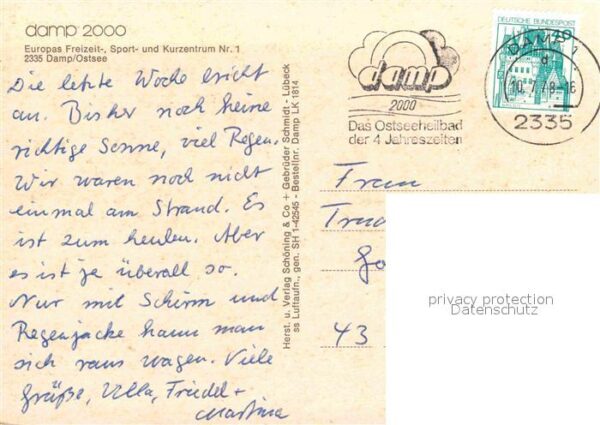 damp 2000
Europas Freizeit-, Sport- und Kurzentrum Nr. 1
2335 Damp/Ostsee
Die letzte Woche bricht
an. Bisher noch keine
richtige Sonne, viel Regen.
Wir waren noch nicht
einmal am Strand. Es
ist zum heulen. Aber
es ist ja überall so.
Nur mit Schirm und
Regenjacke kann man
sich raus wagen. Viele
Grüße, Ulla, Friedel +
Martina
Herst. u. Verlag Schöning & Co + Gebrüder Schmidt - Lübeck
ss Luftaufn., gen. SH 1-42545 - Bestellnr. Damp LK 1814
damp
2000
Das Ostseeheilbad
der 4 Jahreszeiten
DEUTSCHE BUNDESPOST
DAMP 1
10.7.78-16
2335
Frau
43
privacy protection
Datenschutz